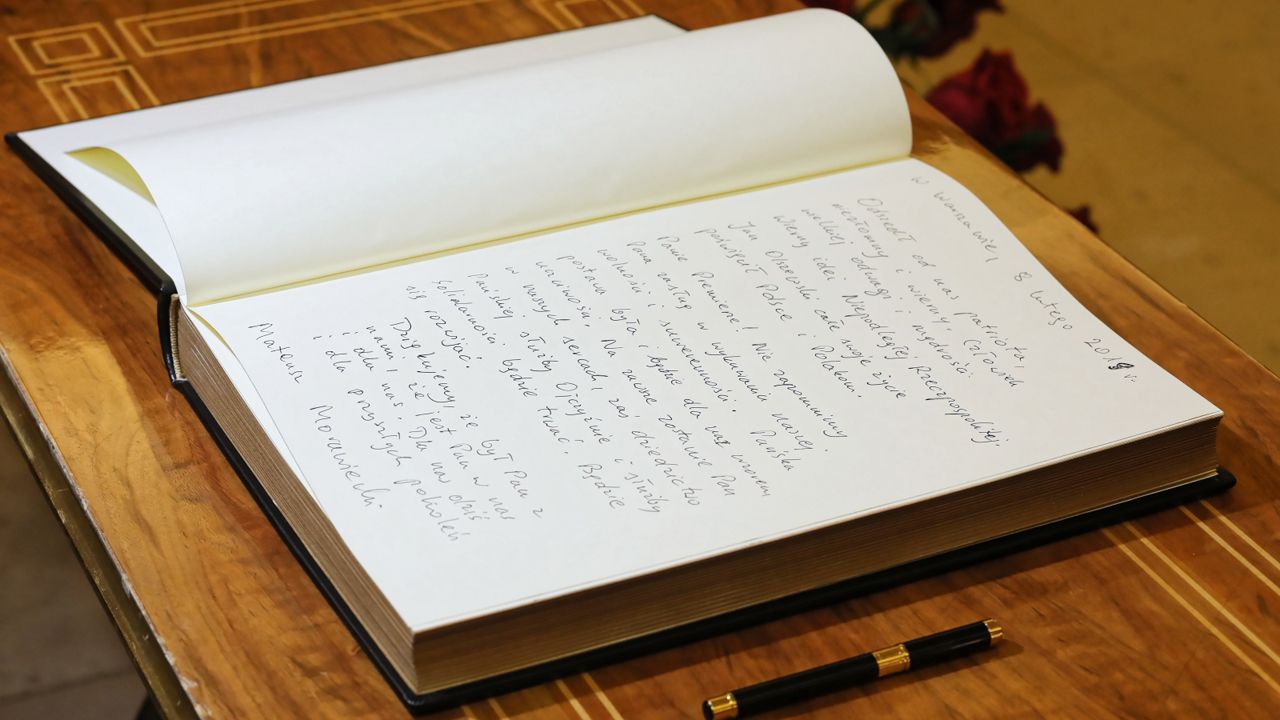 W Warszawie, 8 lutego 2019 r.
Odszedł od nas patriota,
niezłomny i wierny, człowiek
wielkiej odwagi i mądrości.
Wierny idei Niepodległej Rzeczpospolitej.
Jan Olszewski całe swoje życie
poświęcił Polsce i Polakom.
Panie Premierze! Nie zapomnimy
Pana zasług w wykuwaniu naszej
wolności i suwerenności. Pańska
postawa była i będzie dla nas wzorem
uczciwości. Na zawsze zostanie Pan
w naszych sercach, zaś dziedzictwo
Pańskiej służby Ojczyźnie i służby
Solidarności będzie trwać. Będzie
się rozwijać.
Dziękujemy, że był Pan z
nami, że jest Pan w nas
i dla nas. Dla nas dziś
i dla przyszłych pokoleń
Mateusz Morawiecki.